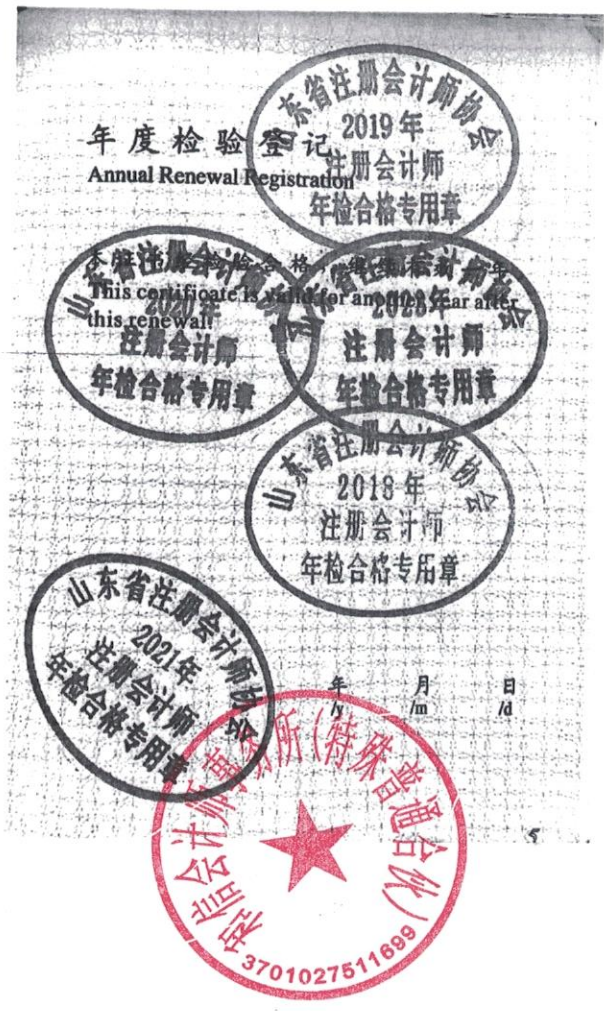 年度检验登记
Annual Renewal Registration
本证书经检验合格,继续有效一年
This certificate is valid for another year after
this renewal.
山东省注册会计师协会
2019年
注册会计师
年检合格专用章
山东省注册会计师协会
2020年
注册会计师
年检合格专用章
山东省注册会计师协会
注册会计师
年检合格专用章
山东省注册会计师协会
2018年
注册会计师
年检合格专用章
山东省注册会计师协会
2021年
注册会计师
年检合格专用章
年 月 日
/y /m /d
和信会计师事务所(特殊普通合伙)
3701027511699
5